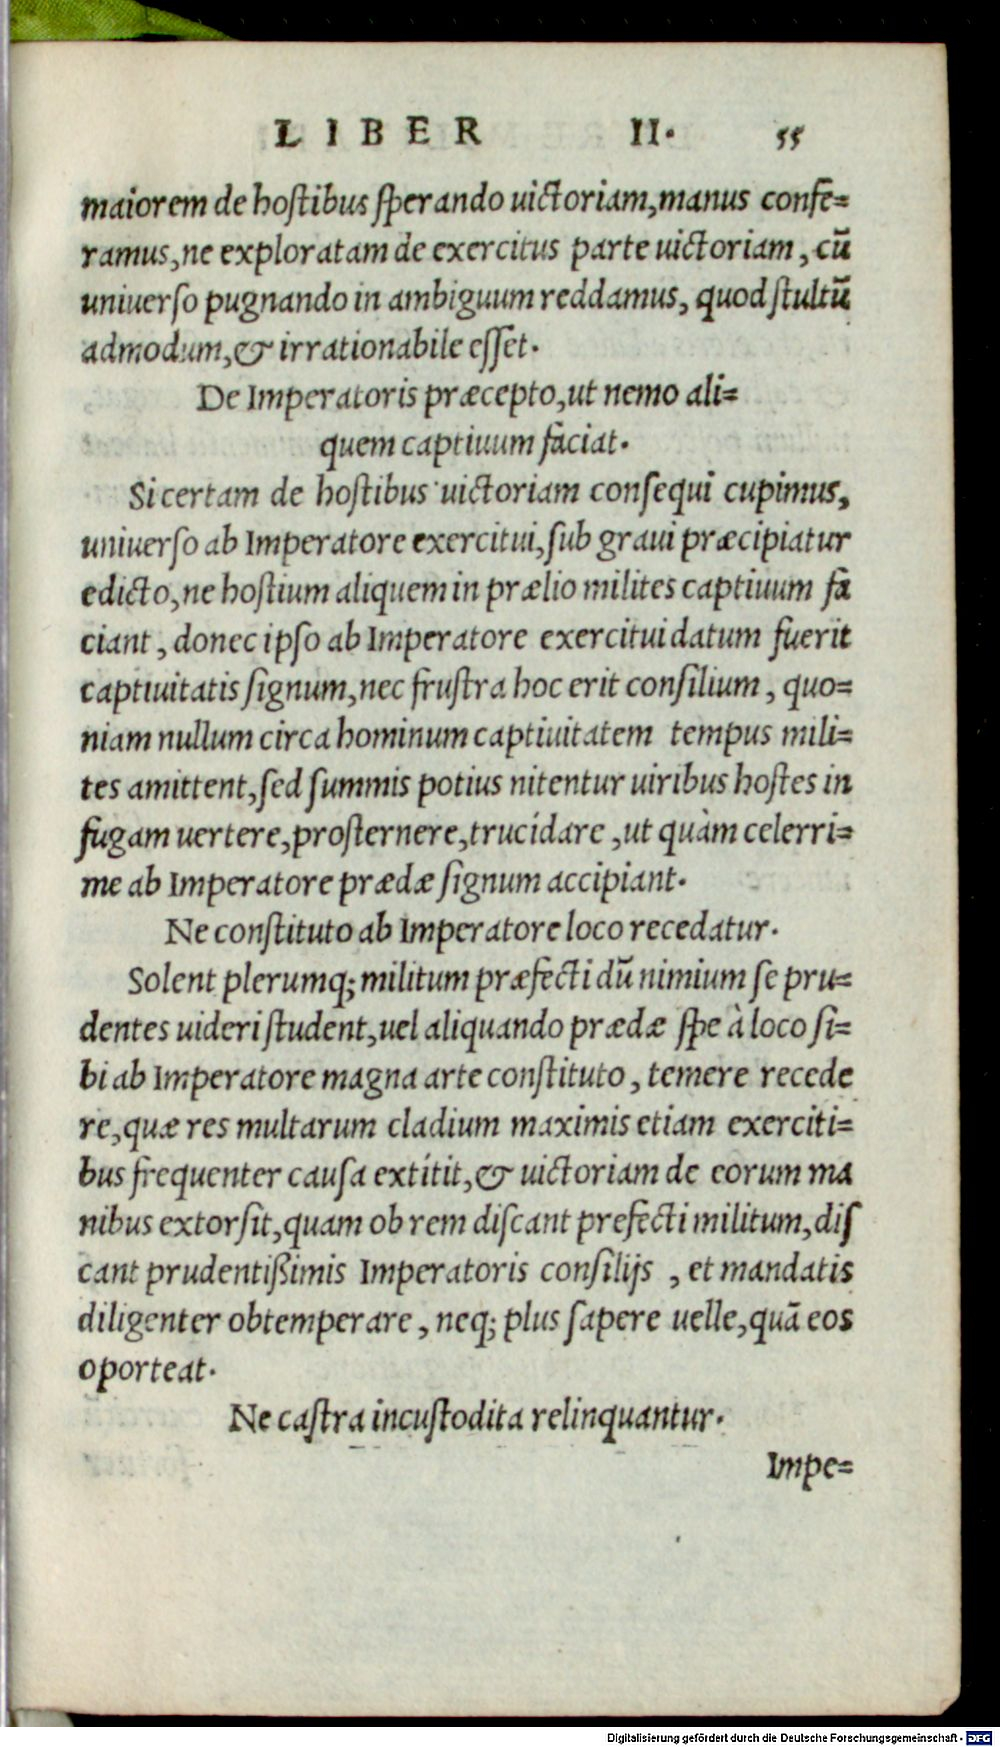 LIBER II. 55
maiorem de hoſtibus ſperando uictoriam, manus confe=
ramus, ne exploratam de exercitus parte uictoriam, cū
uniuerſo pugnando in ambiguum reddamus, quod ſtultū
admodum, & irrationabile eſſet.
De Imperatoris præcepto, ut nemo ali=
quem captiuum faciat.
Si certam de hoſtibus uictoriam conſequi cupimus,
uniuerſo ab Imperatore exercitui, ſub graui præcipiatur
edicto, ne hoſtium aliquem in prælio milites captiuum fa
ciant, donec ipſo ab Imperatore exercitui datum fuerit
captiuitatis ſignum, nec fruſtra hoc erit conſilium, quo=
niam nullum circa hominum captiuitatem tempus mili=
tes amittent, ſed ſummis potius nitentur uiribus hoſtes in
fugam uertere, proſternere, trucidare, ut quàm celerri=
me ab Imperatore prædæ ſignum accipiant.
Ne conſtituto ab Imperatore loco recedatur.
Solent plerumq; militum præfecti dū nimium ſe pru=
dentes uideri ſtudent, uel aliquando prædæ ſpe à loco ſi=
bi ab Imperatore magna arte conſtituto, temere recede
re, quæ res multarum cladium maximis etiam exerciti=
bus frequenter cauſa extitit, & uictoriam de eorum ma
nibus extorſit, quam ob rem diſcant prefecti militum, diſ
cant prudentißimis Imperatoris conſilijs, et mandatis
diligenter obtemperare, neq; plus ſapere uelle, quā eos
oporteat.
Ne caſtra incuſtodita relinquantur.
Impe=
Digitalisierung gefördert durch die Deutsche Forschungsgemeinschaft - DFG